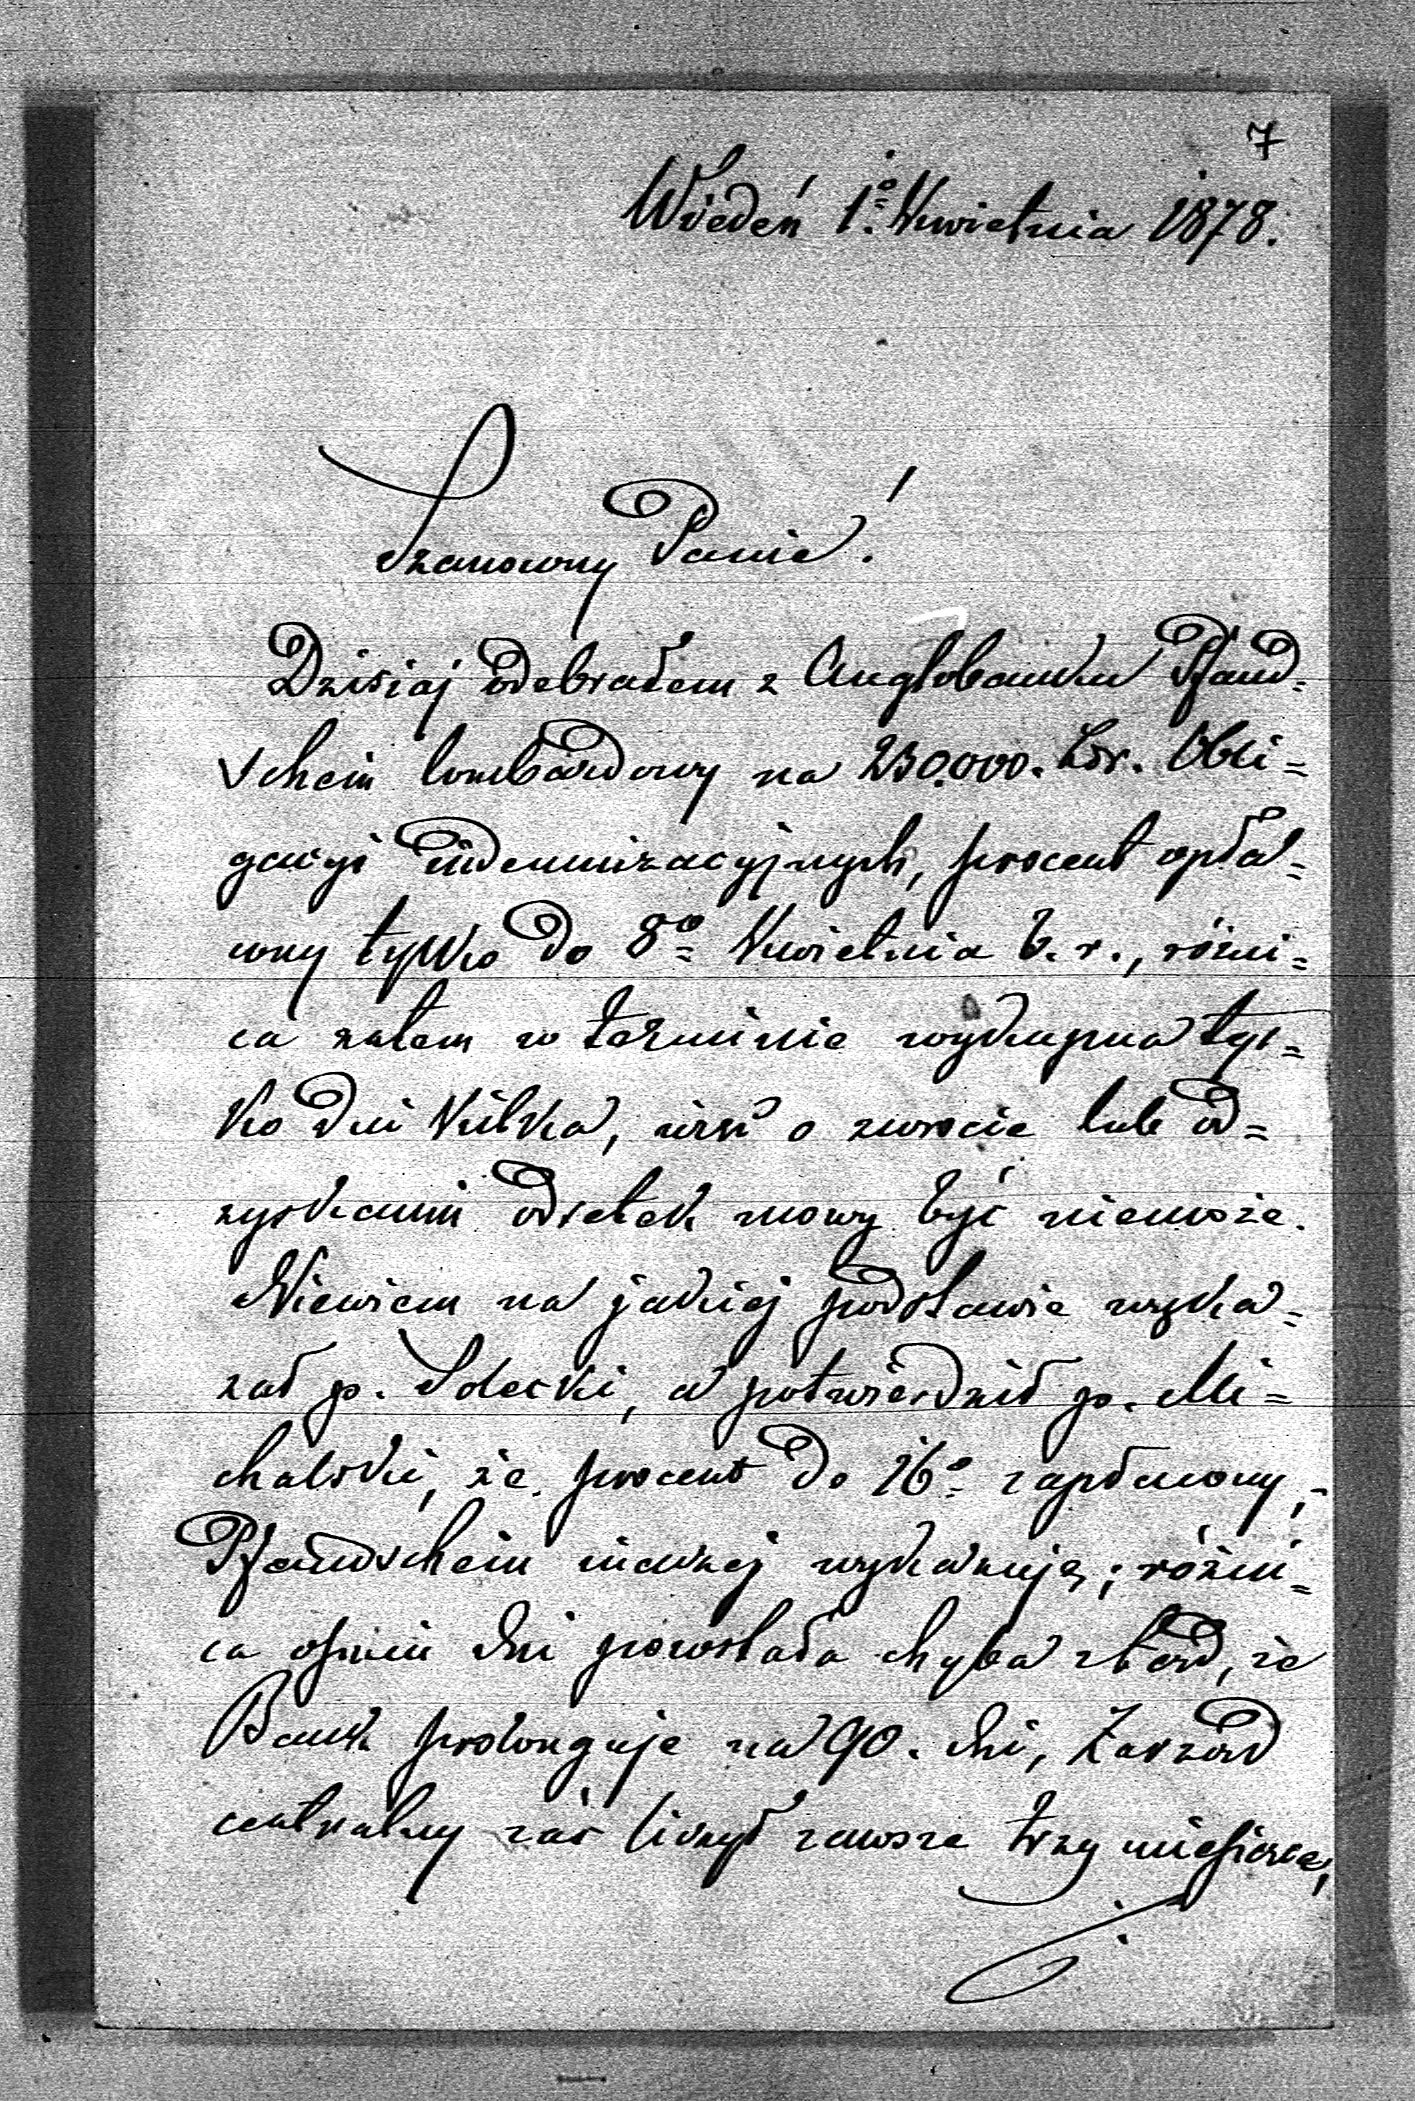 7
Wiedeń 1º Kwietnia 1878.
Szanowny Panie!
Dzisiaj odebrałem z Anglobanku Pfand=
schein lombardowy na 230.000. Złr. Obli=
gacyi indemnizacyjnych, procent opła=
cony tylko do 8º Kwietnia b. r., różni=
ca zatem w terminie wykupna tyl=
ko dni kilka, więc o zwrocie lub od=
zyskaniu odsetek mowy być niemoże.
Niewiem na jakiej podstawie wyka=
zał p. Solecki, a potwierdził p. Mi=
chalski, że procent do 16º zapłacony,
Pfandschein inaczej wykazuje; różni=
ca ośmiu dni powstała chyba ztąd, że
Bank prolonguje na 90. dni, Zarząd
centralny zaś liczył zawsze trzy miesiące,